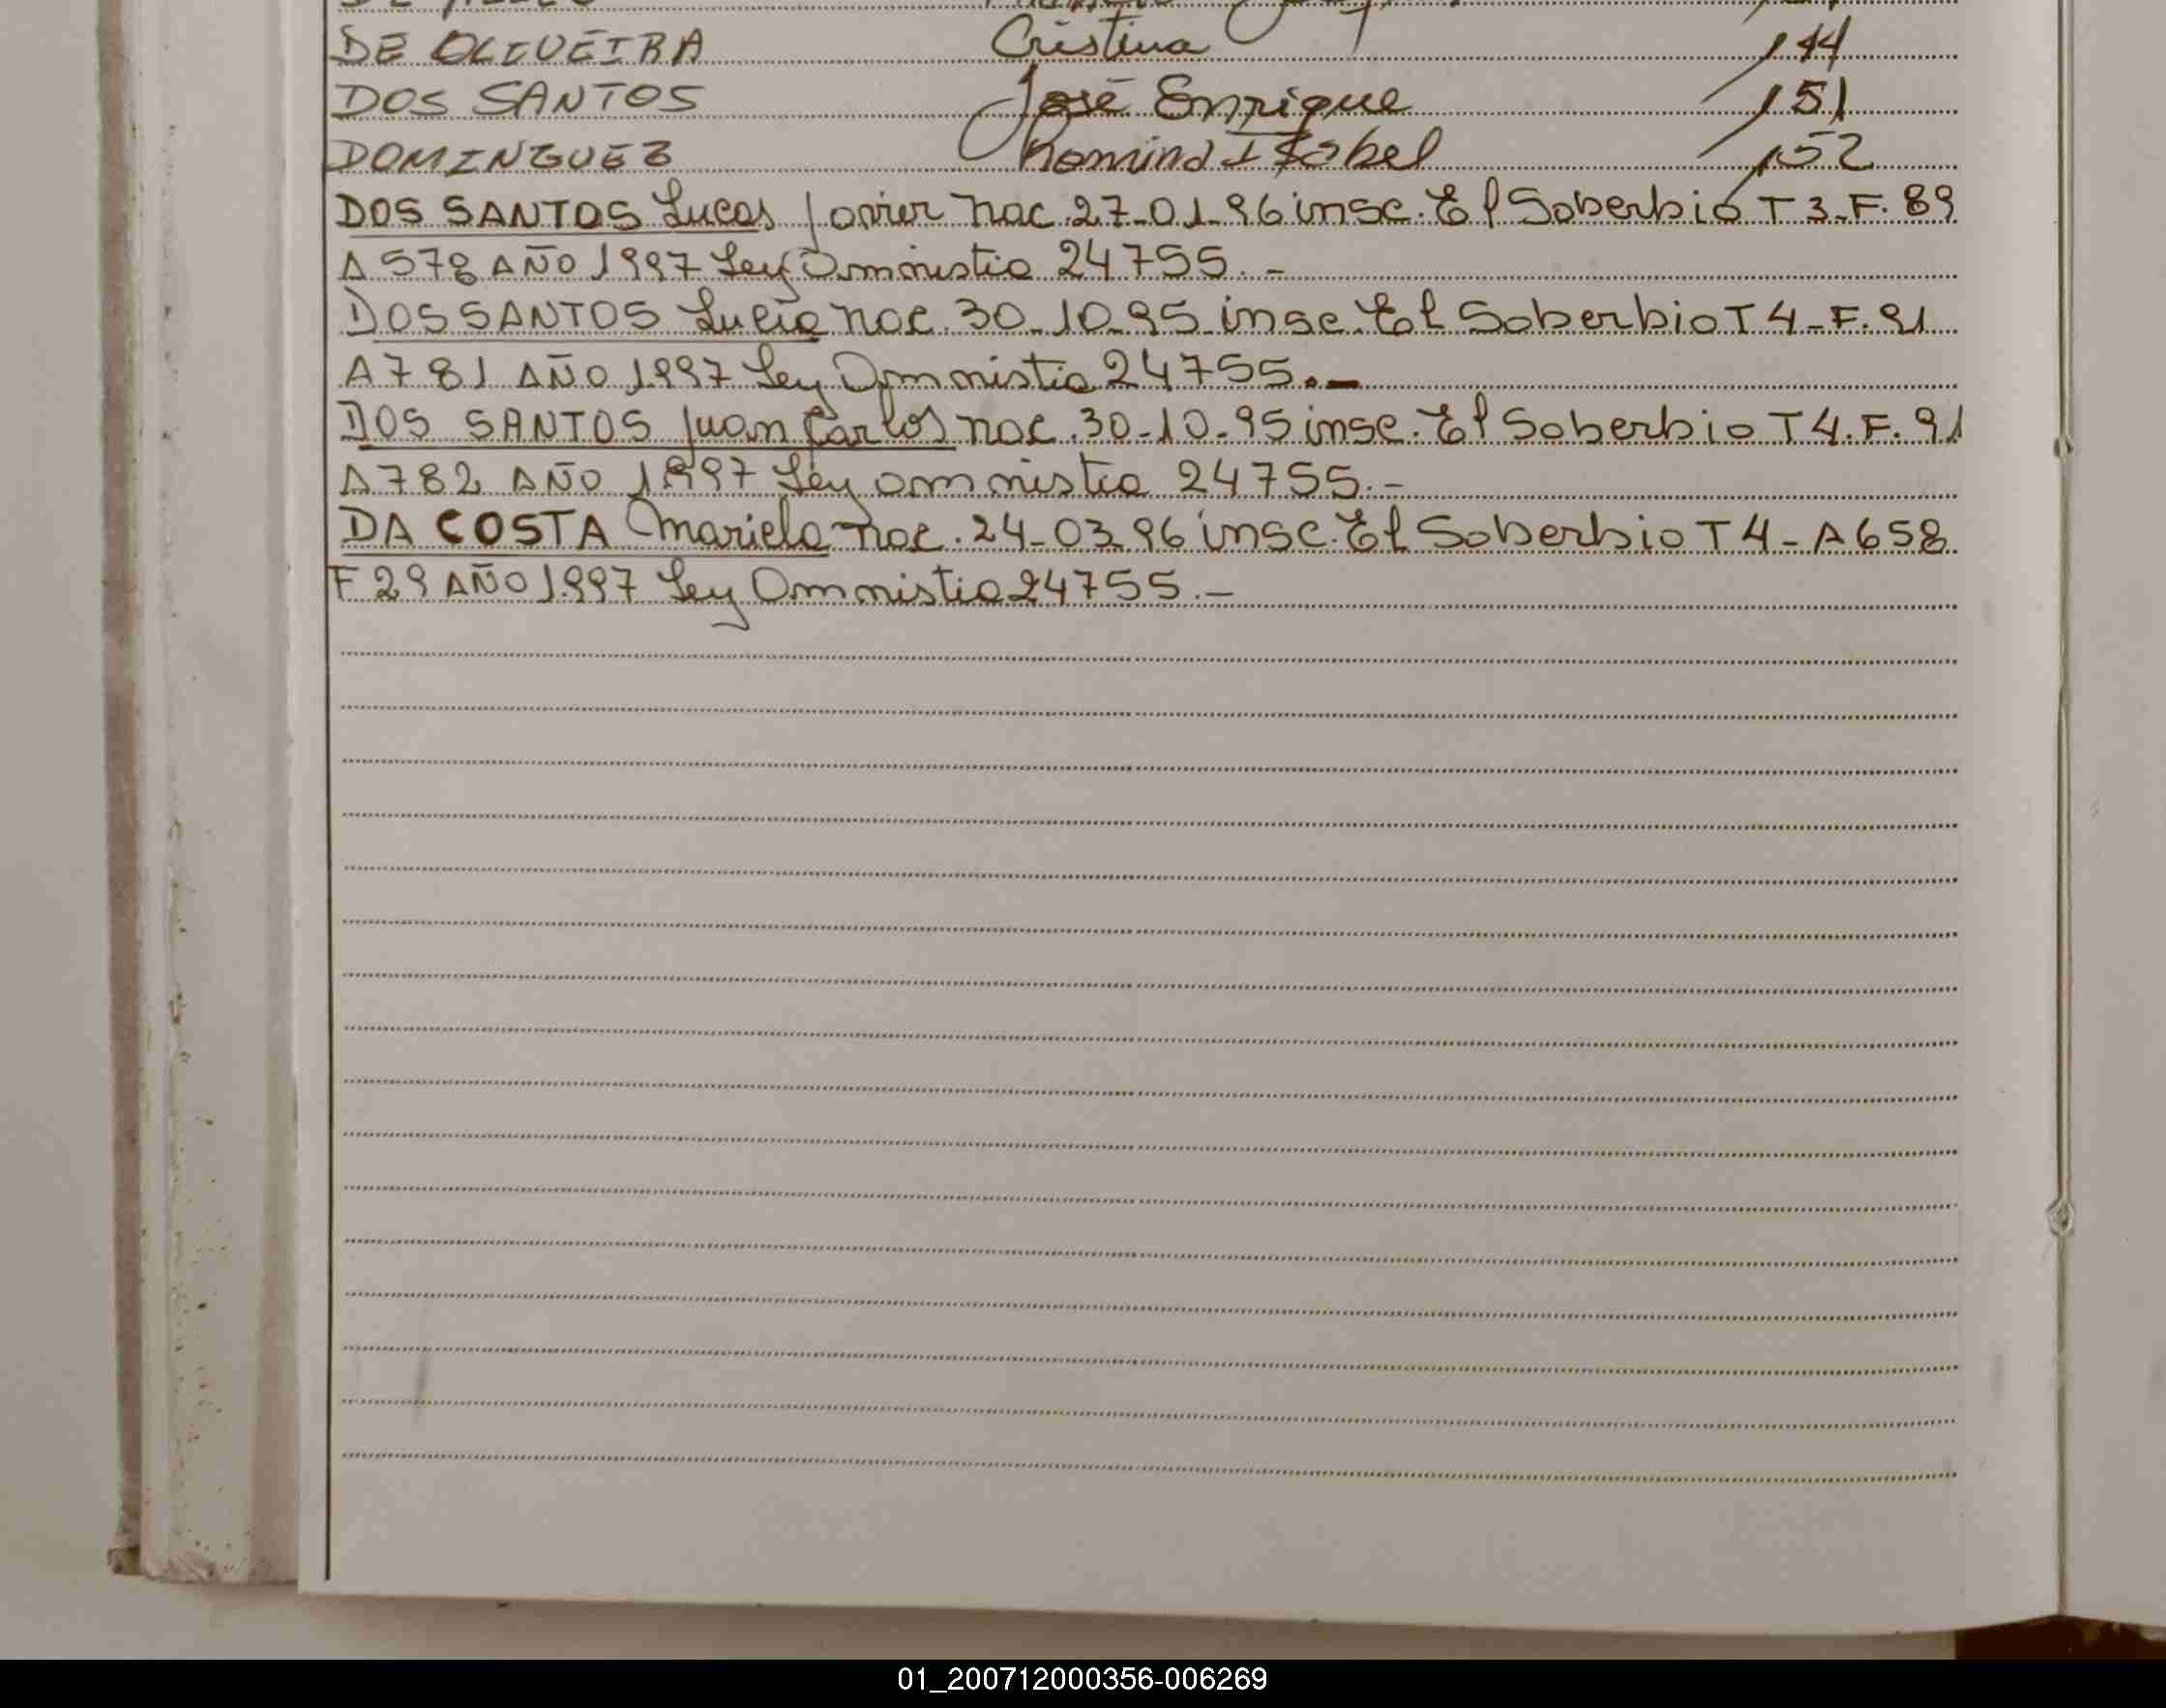 DE OLIVEIRA Cristina 144
DOS SANTOS José Enrique 151
DOMINGUEZ Romina Isabel 152
DOS SANTOS Lucas Javier nac. 27-01-96 insc. El Soberbio T 3-F. 89
A 578 AÑO 1997 Ley Amnistia 24755.-
DOS SANTOS Lucia nac. 30-10-95 insc. El Soberbio T 4-F. 91
A 781 AÑO 1997 Ley Amnistia 24755.-
DOS SANTOS Juan Carlos nac. 30-10-95 insc. El Soberbio T 4. F. 91
A 782 AÑO 1997 Ley amnistia 24755.-
DA COSTA Mariela nac. 24-03-96 insc. El Soberbio T 4-A 658
F 29 AÑO 1.997 Ley Amnistia 24755.-
01_200712000356-006269